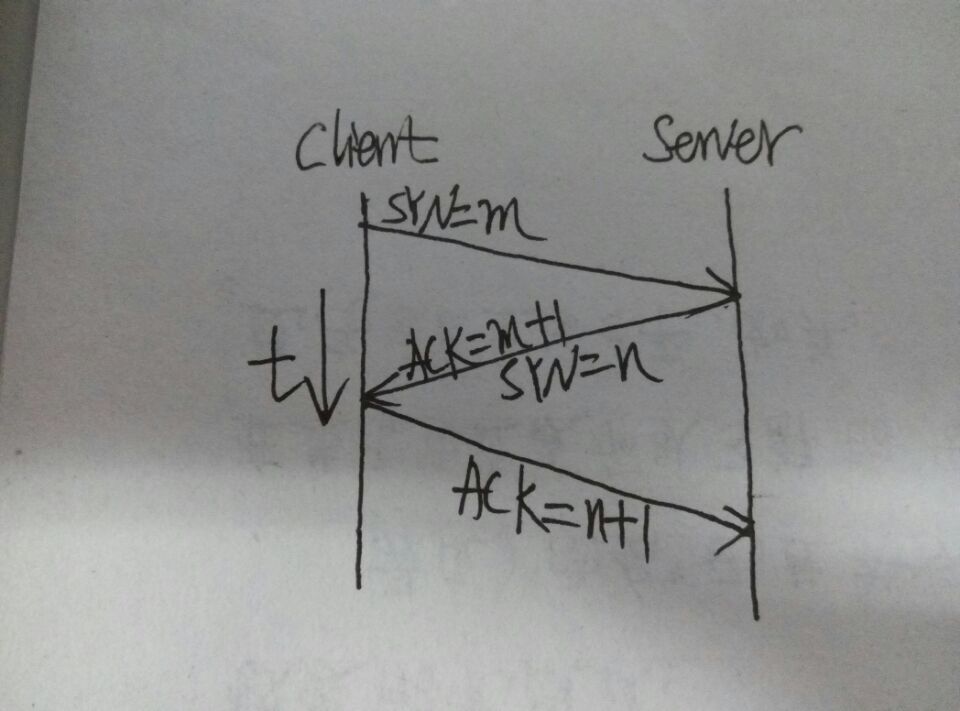 Client
Server
SYN=m
ACK=m+1
SYN=n
t
ACK=n+1